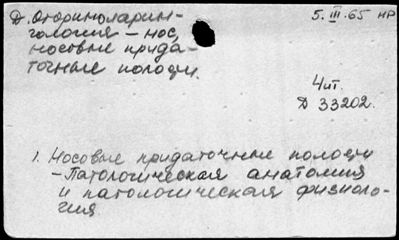 Д. Оториноларин-
гология – нос,
носовые прида-
точные полости.
5.III.65 НР
Чит.
Д 33202.
1. Носовые придаточные полости
– Патологическая анатомия
и патологическая физиоло-
гия